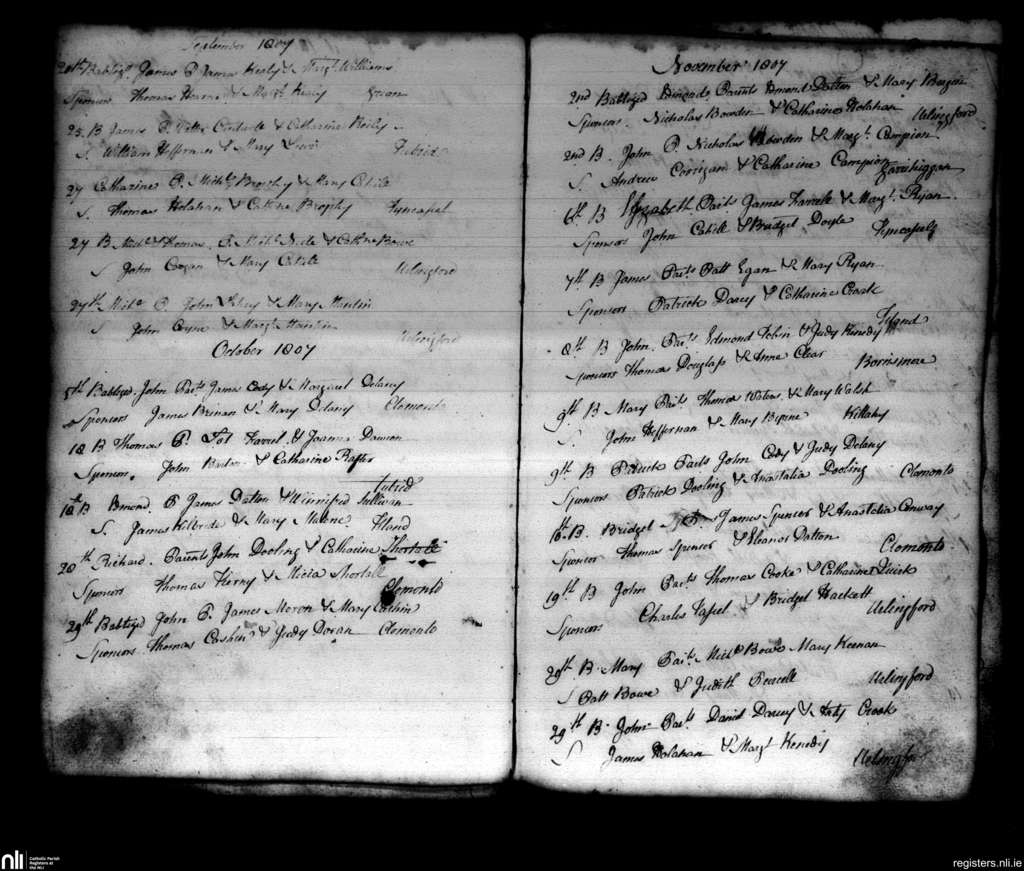 September 1807
20th Babtizd. James P. James Kealy & Margt. Williams
Sponsors Thomas Hearne & Margt. Kealy
25. B James P. Peter & Catharine Kealy
S. William Heffernan & Mary
27 Catharine P. Michl. Brophy & Mary Cahile
S. Thomas Holahan & Cathne Brophy
27 B Michl. & Thomas. P. Michl. & Cathne Bowe
S John & Mary Cahile Urlingford
27th Michl. P. John & Mary
S John & Margt. Urlingford
October 1807
5th Babtizd. John Parts. James Cody & Margaret Delany
Sponsors James Brenan & Mary Delany Clomonto
18 B Thomas P. Farrel & Joanna Dawson
Sponsors. John & Catharine Rafter
Tubrid
18th B Edmond. P James Dalton & Winnifred Sullivan
S. James Kilbride & Mary Malone Island
20th Richard. Parents John Dooling & Catharine Shortall
Sponsors Thomas Kierny & Alicia Shortall
Clomonto
29th Babtizd John P. James Moron & Mary Cashin
Sponsors Thomas Cashin & Judy Doran Clomonto
November 1807
2nd Babtized Edmond. Parents Edmond Dalton & Mary Bergin
Sponsors. Nicholas Bowden & Catharine Holahan Urlingford
2nd B. John P Nicholas Bowden & Margt. Campion
S. Andrew Corrigan & Catharine Campion
6th B Elizabeth Parts. James Farrele & Margt. Ryan
Sponsors John Cahile & Bridget Doyle
7th B James Parts Patt Egan & Mary Ryan
Sponsors Patrick Darcy & Catharine Croak
Island
8th B John. Parts Edmond Tobin & Judy Kenedy
Sponsors Thomas Douglass & Anne Clear Borrismore
9th B Mary Parts. Thomas Waters & Mary Walsh
S. John Heffernan & Mary Byrne Killahy
9th B Patrick Parts John Cody & Judy Delany
Sponsors Patrick Dooling & Anastatia Dooling Clomonto
16th B. Bridget James Spencer & Anastatia Conway
Sponsor Thomas Spencer & Eleanor Dalton Clomonto
19th B John Parts Thomas Cooke & Catharine Quirk
Sponsors Charles & Bridget Hackett Urlingford
29th B Mary Parts Michl Bowe Mary Keenan
S Patt Bowe & Judith Pearcelle Urlingford
29th B. John Parts David Darcey & Croak
S James Holahan & Margt Kenedy Urlingford
nli
Catholic Parish
Registers at
the NLI
registers.nli.ie